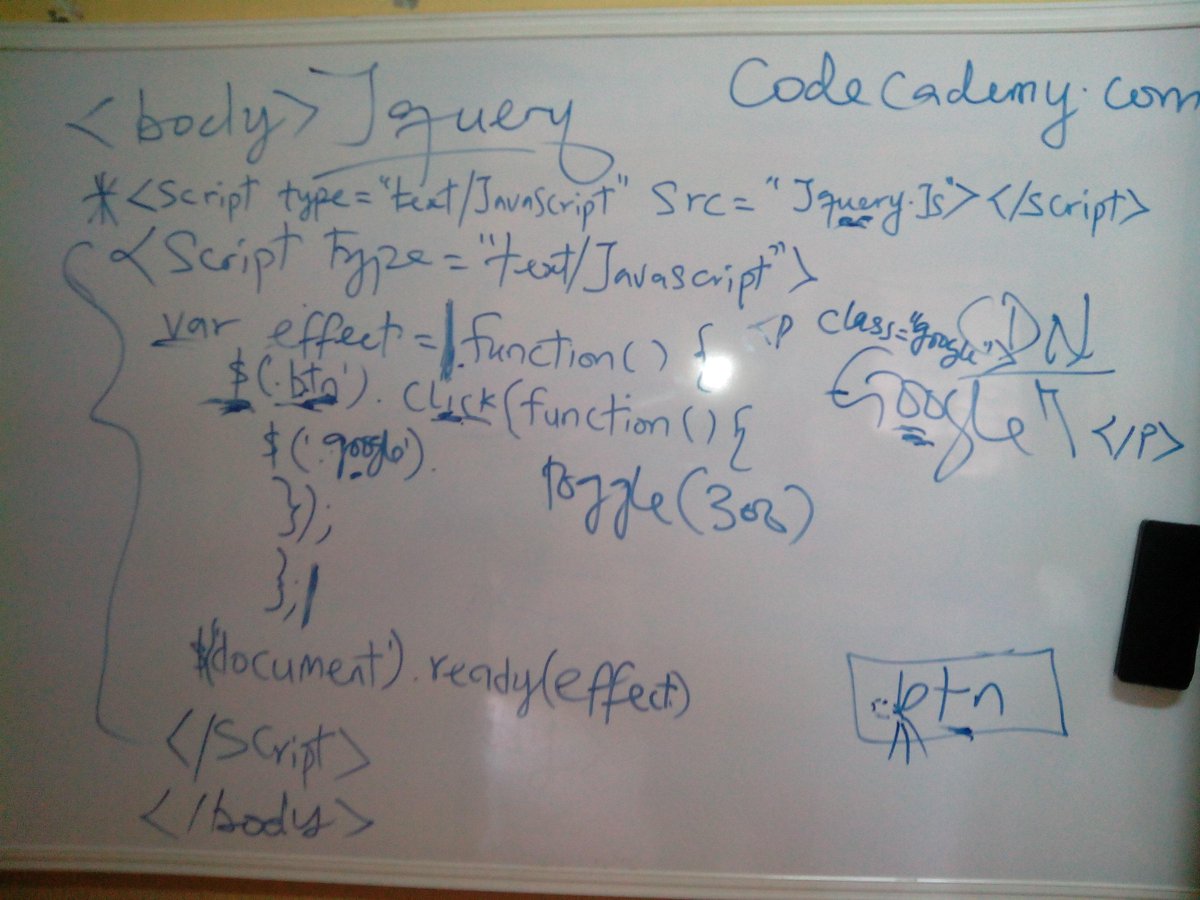 <body> Jquery
Codecademy.com
*<Script type="text/JavaScript" Src="Jquery.Js"></script>
<Script Type="text/Javascript">
var effect = .function() {
<p class="google">
CDN
$('.btn').click(function() {
Google </p>
$('.google').
toggle(300)
});
};
$('document').ready(effect)
.btn
</script>
</body>